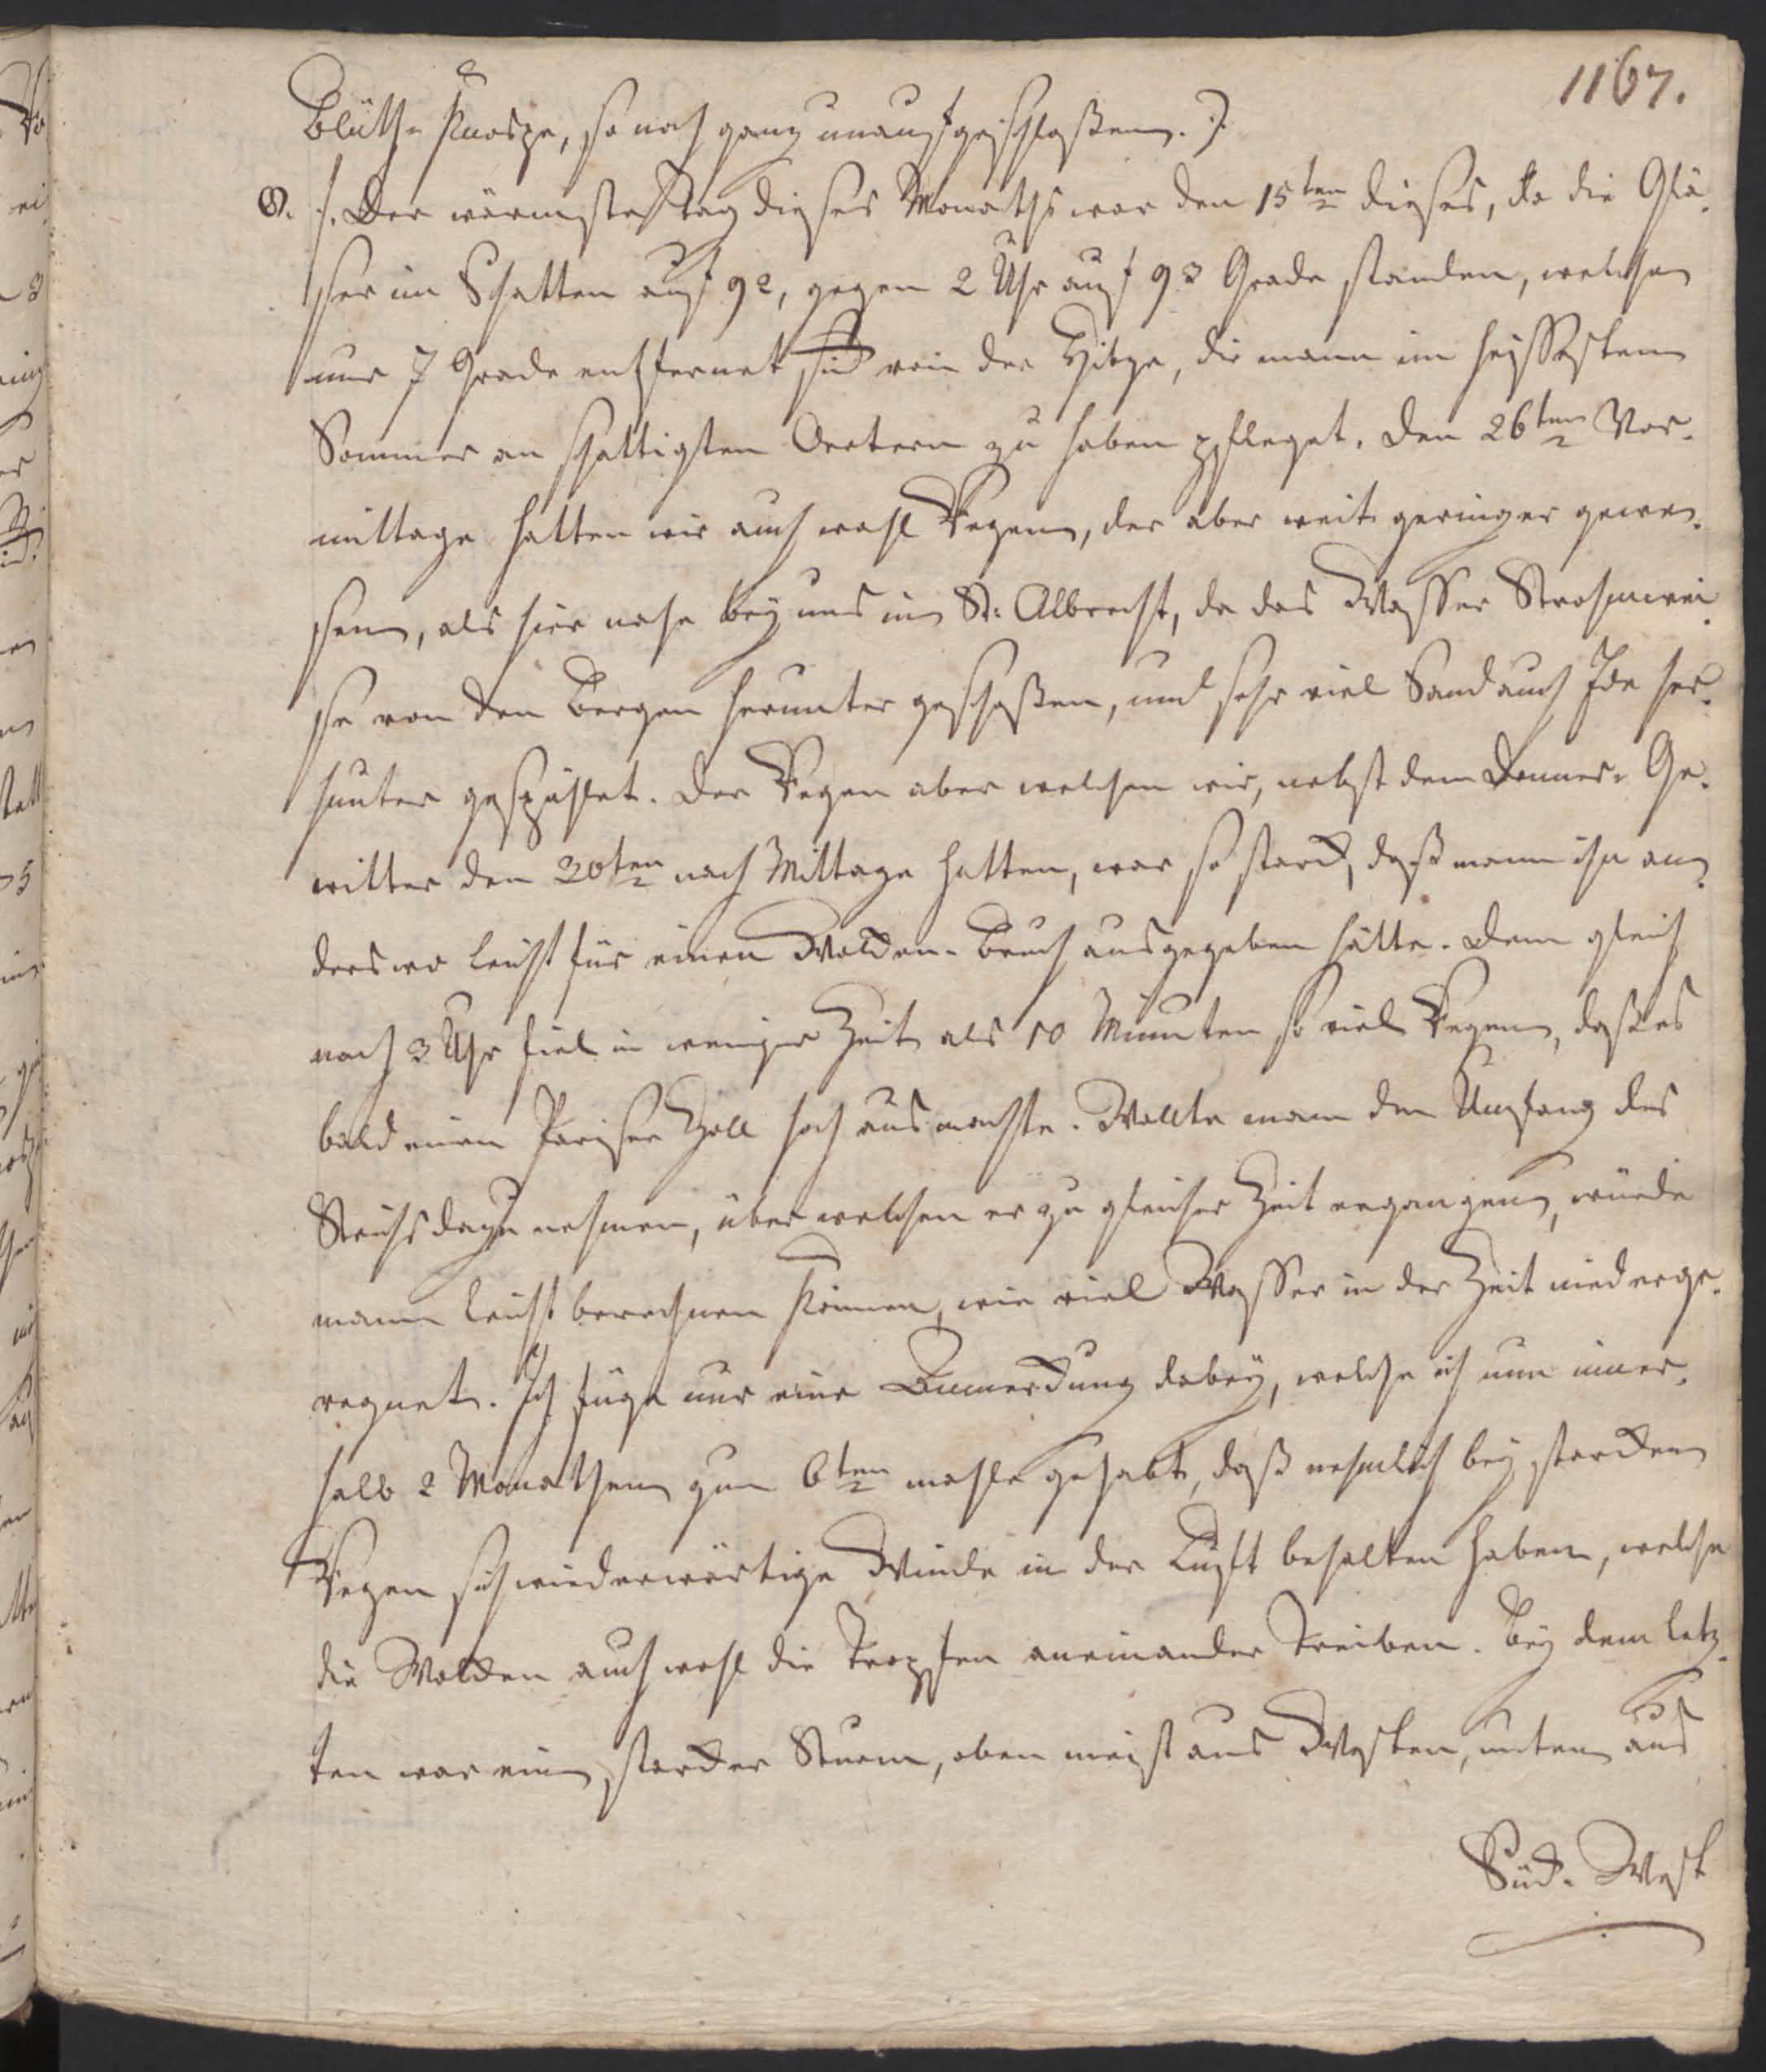 1167.
Blüth-Knospe, so noch ganz unaufgeschloßen.).
8. /. Der wärmste Tag dieses Monaths war den 15ten dieses, da die Glä-
ser im Schatten auf 92, gegen 2 Uhr auf 93 Grade standen, welches
nur 7 Grade entfernet sind von der Hitze, die mann im heissesten
Sommer an schattigsten Oertern zu haben pfleget. Den 26ten Vor-
mittage hatten wir auch wohl Regen, der aber weit geringer gewe-
sen, als hier nahe bey uns in St: Albrecht, da das Wasser Strohmwei-
se von den Bergen herunter geschoßen, und sehr viel Sand auch Erde her-
unter gespühlet. Der Regen aber welchen wir, nebst dem Donner-Ge-
witter den 30ten nach Mittage hatten, war so starck, daß mann ihn an-
derswo leicht für einen Wolcken-Bruch ausgegeben hätte. Denn gleich
nach 3 Uhr fiel in weniger Zeit als 10 Minuten so viel Regen, daß es
bald einen Pariser Zoll hoch ausmachte. Wollte mann den Umfang des
Strichs dazu nehmen, über welchen er zu gleicher Zeit ergangen, würde
mann leicht berechnen können, wie viel Wasser in der Zeit niederge-
regnet. Ich füge nur eine Anmerckung dabey, welche ich nun inner-
halb 2 Monathen zum 6ten mahle gehabt, daß nehmlich bey starcken
Regen sich wiederwärtige Winde in der Lufft behalten haben, welche
die Wolcken auch wohl die Tropfen aneinander treiben. Bey dem letz-
ten war ein starcker Sturm, oben meist aus Westen, unten aus
Süd-West